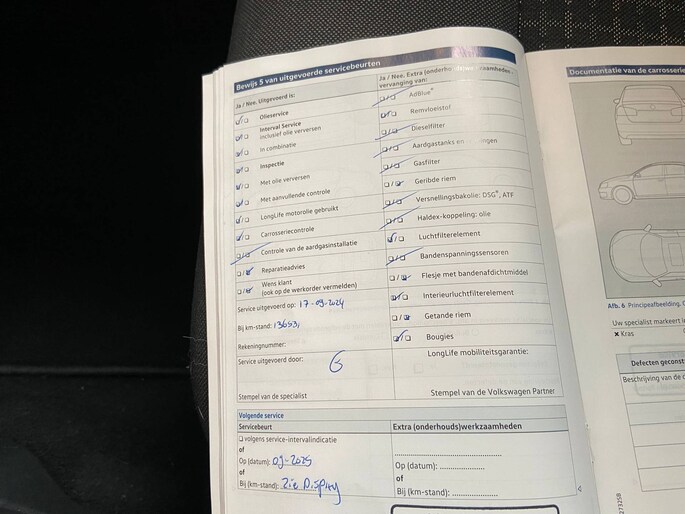 Bewijs 5 van uitgevoerde servicebeurten
Ja / Nee. Uitgevoerd is:
Olieservice
Interval Service
inclusief olie verversen
In combinatie
Inspectie
Met olie verversen
Met aanvullende controle
LongLife motorolie gebruikt
Carrosseriecontrole
Controle van de aardgasinstallatie
Reparatieadvies
Wens klant
(ook op de werkorder vermelden)
Service uitgevoerd op: 17-09-2024
Bij km-stand: 136531
Rekeningnummer:
Service uitgevoerd door:
Stempel van de specialist
Ja / Nee. Extra (onderhouds)werkzaamheden,
vervanging van:
AdBlue®
Remvloeistof
Dieselfilter
Aardgastanks en
Gasfilter
Geribde riem
Versnellingsbakolie: DSG®, ATF
Haldex-koppeling: olie
Luchtfilterelement
Bandenspanningssensoren
Flesje met bandenafdichtmiddel
Interieurluchtfilterelement
Getande riem
Bougies
LongLife mobiliteitsgarantie:
Stempel van de Volkswagen Partner
Volgende service
Servicebeurt
volgens service-intervalindicatie
of
Op (datum): 09-2025
of
Bij (km-stand): Zie Display
Extra (onderhouds)werkzaamheden
Op (datum): ....................
of
Bij (km-stand): ....................
Documentatie van de carrosserie
Afb. 6 Principeafbeelding.
Uw specialist markeert
Kras
Defecten geconst
Beschrijving van de